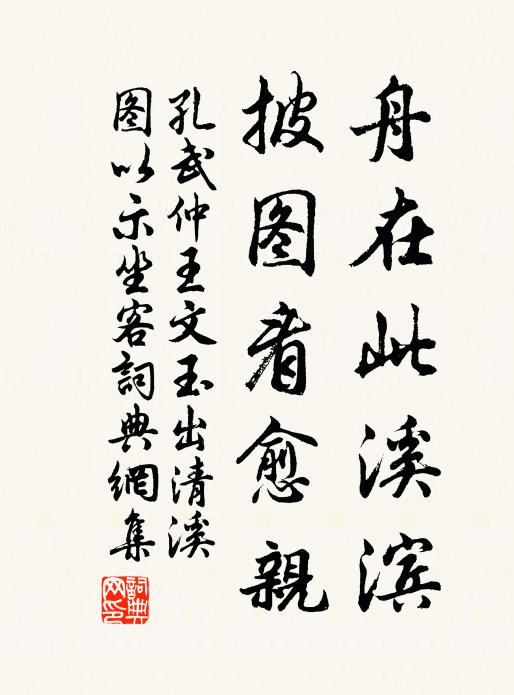 舟在此溪滨
披图看愈親
孔武仲王文玉出清溪
图以示坐客詞典網集
詞典